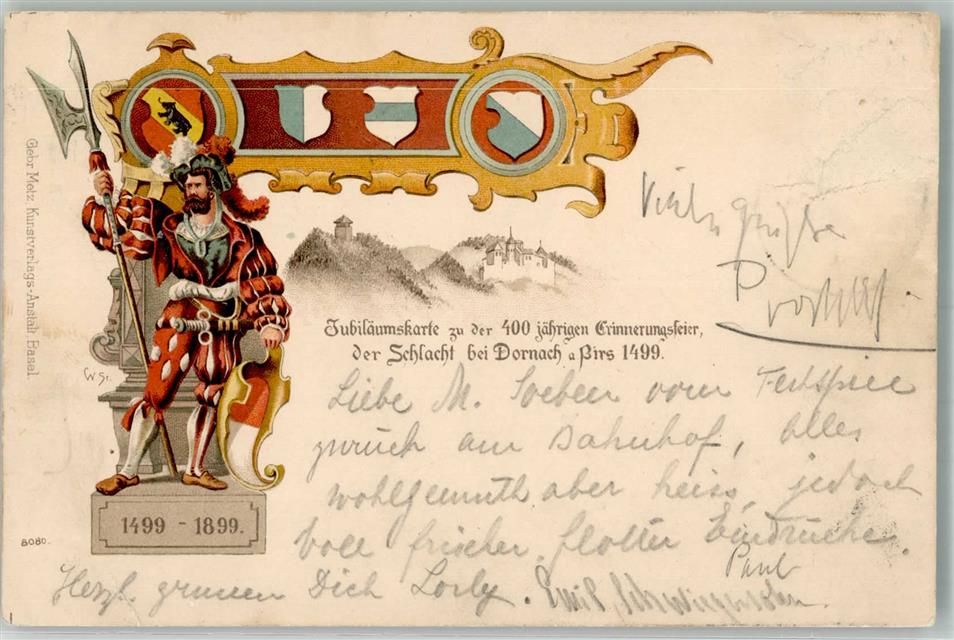 Gebr Metz, Kunstverlags-Anstalt Basel.
Viele Grüsse
Jubiläumskarte zu der 400 jährigen Erinnerungsfeier,
der Schlacht bei Dornach a/Birs 1499.
C W St.
Liebe M. Soeben vom Festspiel
zurück am Bahnhof, alles
wohlgemuth aber heiss, jedoch
voll frischer flotter Eindrücke.
1499 - 1899.
8080.
Paul
Herzl. grüssen Dich Emil